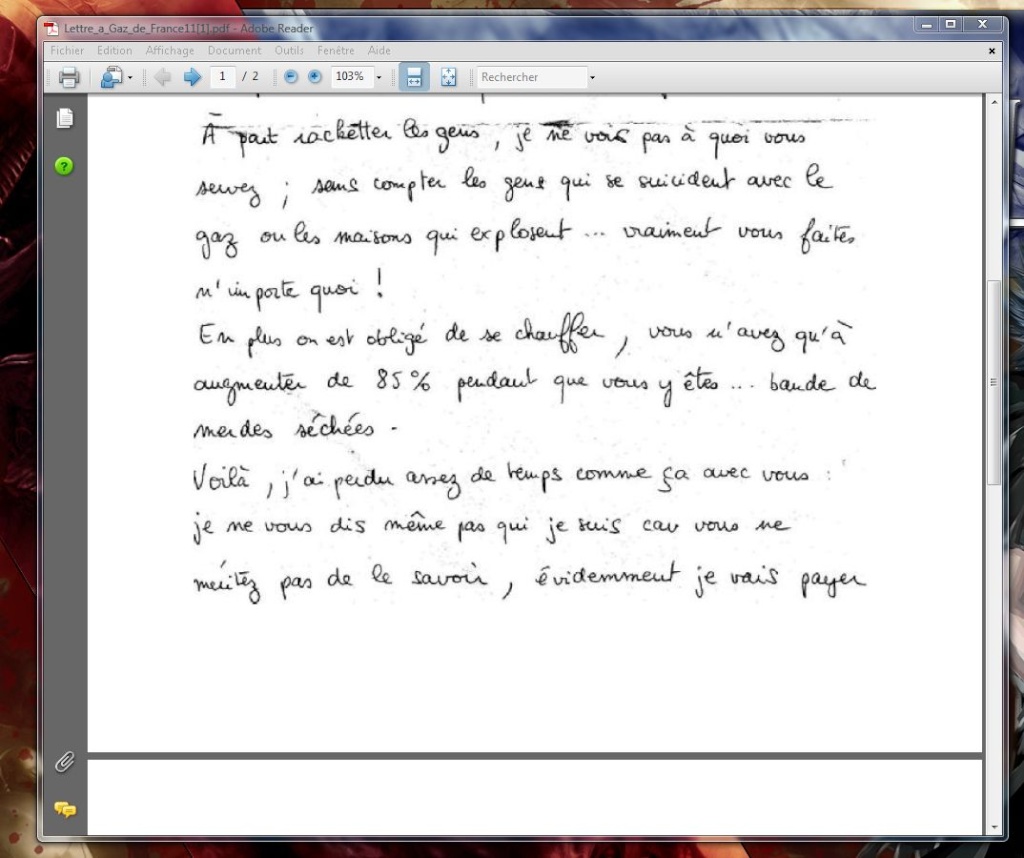 Lettre_a_Gaz_de_France11[1].pdf - Adobe Reader
Fichier Edition Affichage Document Outils Fenêtre Aide
1 / 2 103% Rechercher
À part racketter les gens, je ne vois pas à quoi vous
servez ; sans compter les gens qui se suicident avec le
gaz ou les maisons qui explosent ... vraiment vous faites
n'importe quoi !
En plus on est obligé de se chauffer, vous n'avez qu'à
augmenter de 85% pendant que vous y êtes ... bande de
merdes séchées.
Voilà, j'ai perdu assez de temps comme ça avec vous :
je ne vous dis même pas qui je suis car vous ne
méritez pas de le savoir, évidemment je vais payer